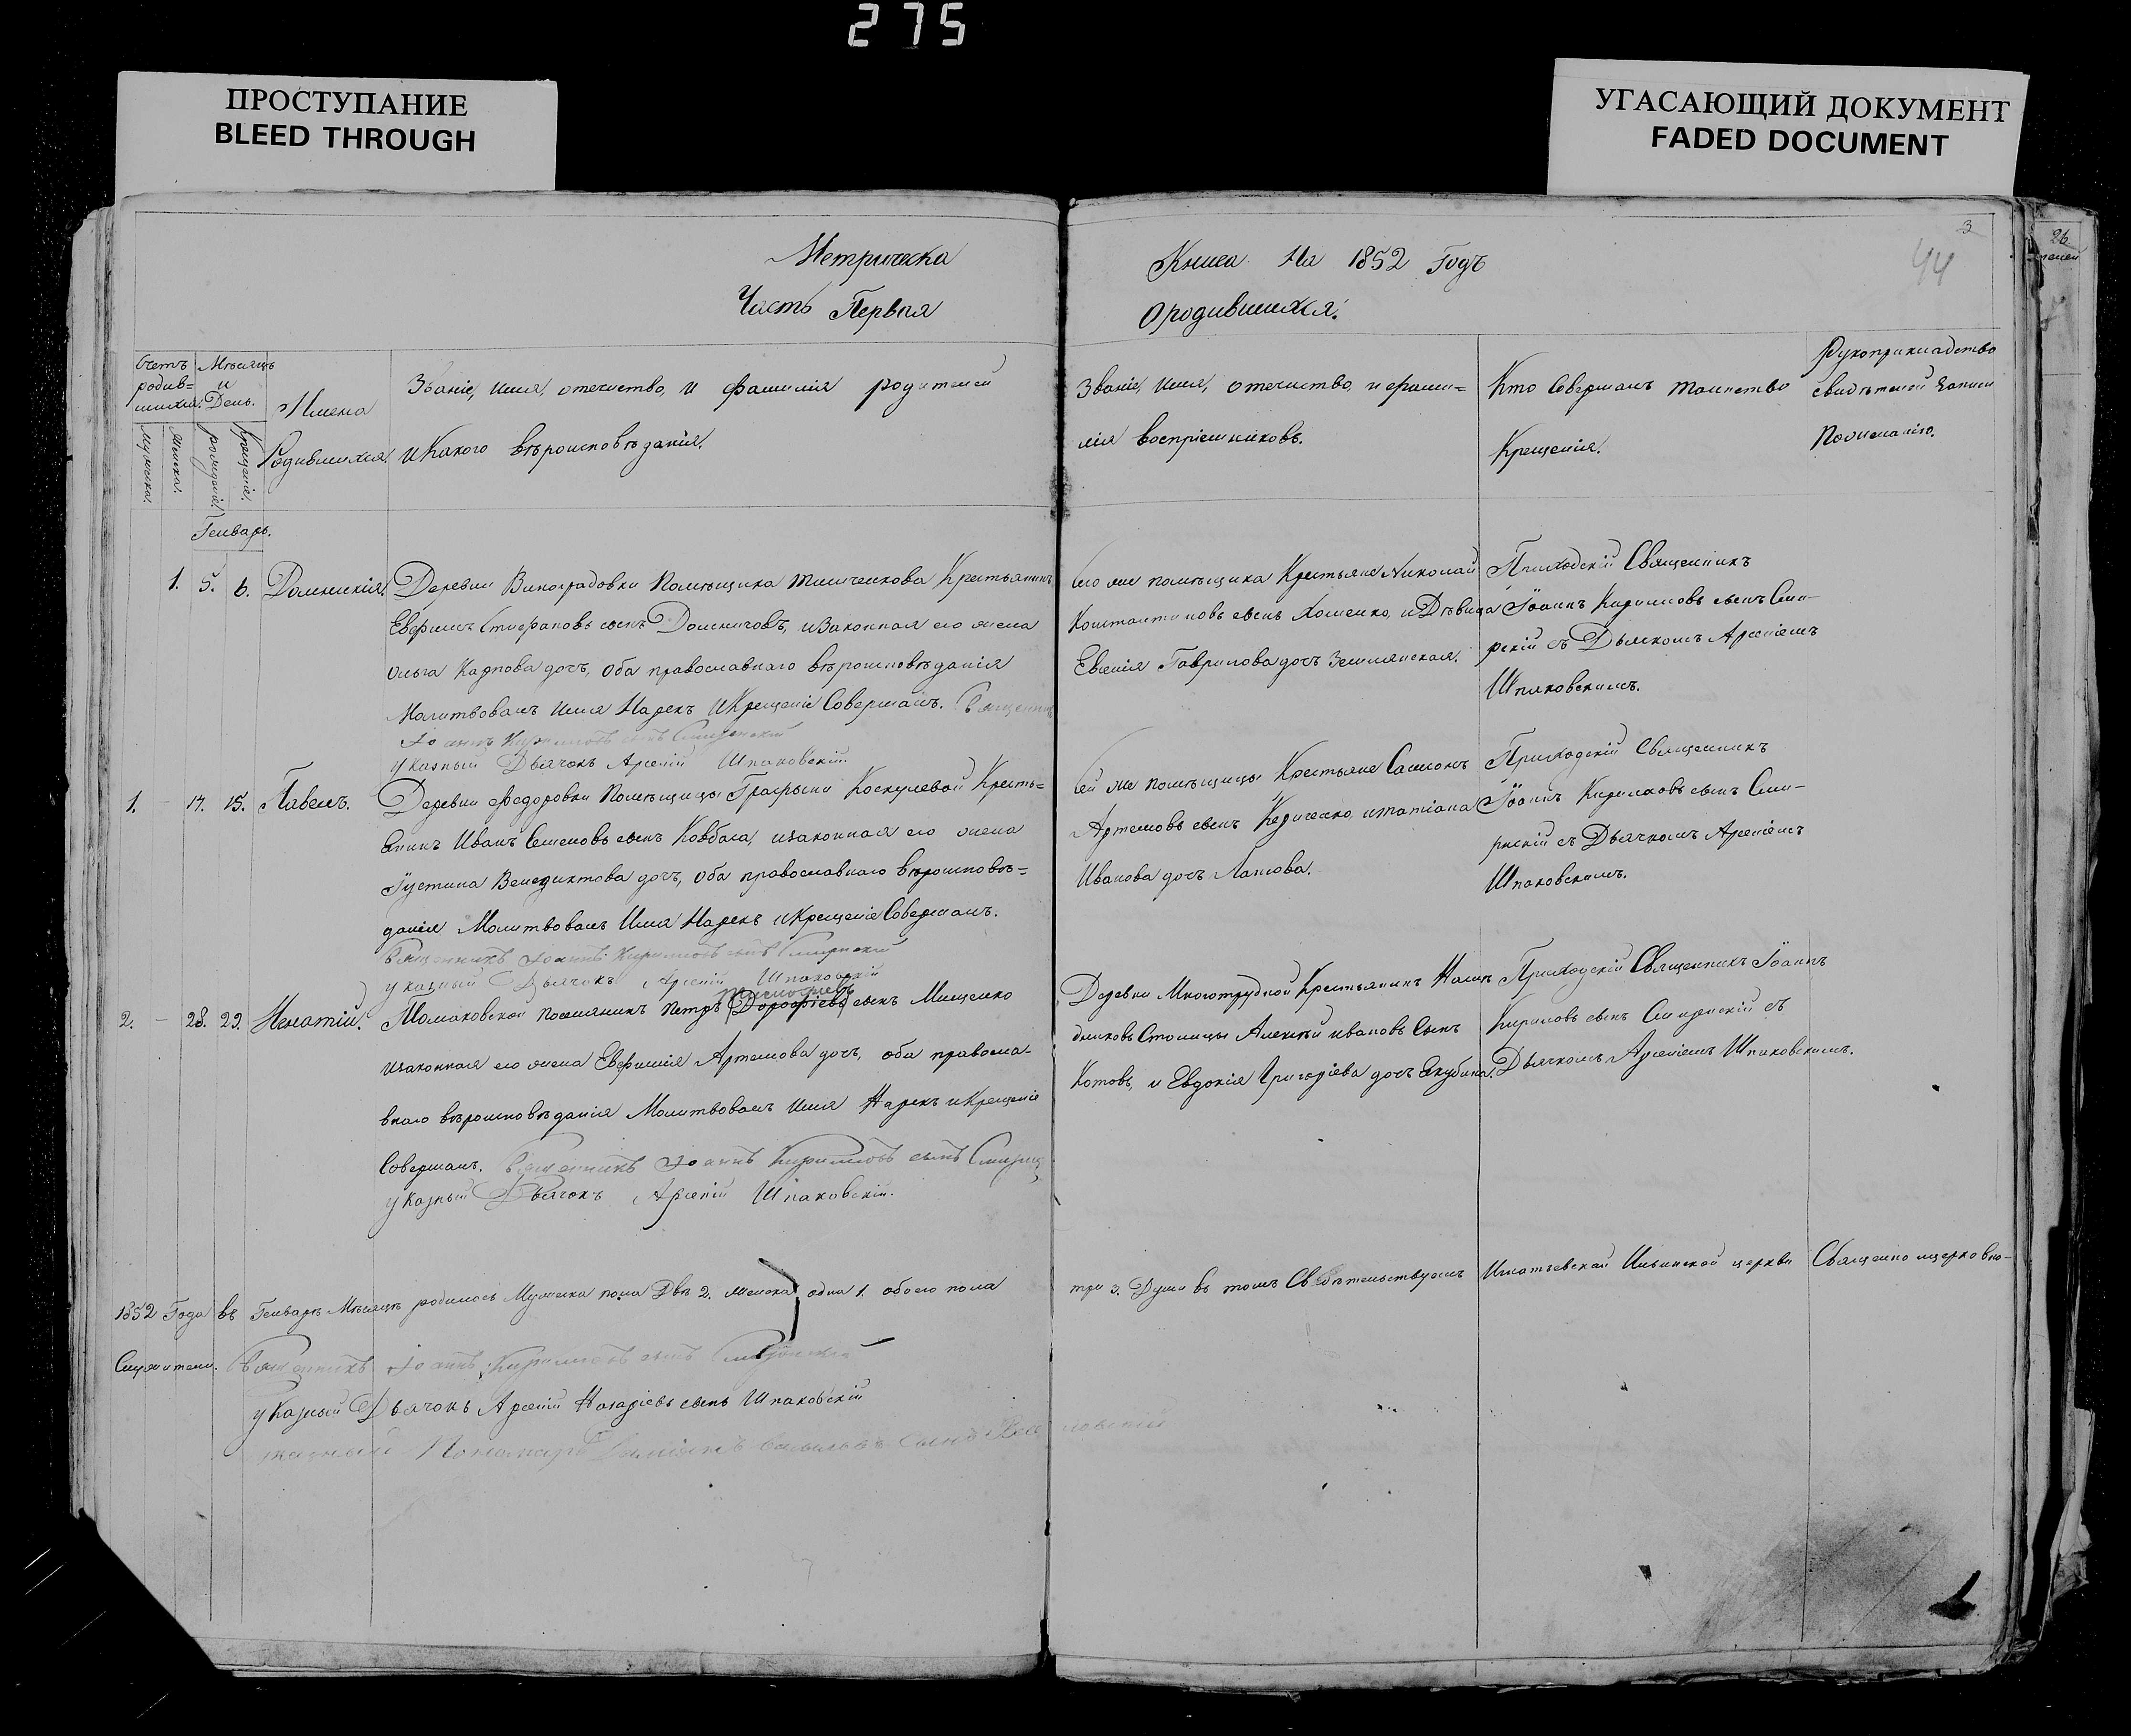 275
ПРОСТУПАНИЕ
BLEED THROUGH
УГАСАЮЩИЙ ДОКУМЕНТ
FADED DOCUMENT
3
44
26
Метрическа
Часть Первая
Книга На 1852 Годъ
О родившихся.
Счетъ родив=шихся.
Мѣсяцъ и День.
Имена Родившихся.
Званіе, имя, отечество, и фамилія родителей
и Какого вѣроисповѣданія.
Званіе, имя, отечество, и фами=
лія воспріемниковъ.
Кто Совершалъ таинство
Крещенія.
Рукоприкладство
свидѣтелей записи
По желанію.
Мужеска.
Женска.
рожденія.
крещенія.
Генварь.
1. 5. 6. Домникія. Деревни Виноградовки Помѣщика Крестьянинъ
Стефановъ сынъ и Законная его жена
Ольга Карпова дочь, оба православнаго вѣроисповѣданія
Молитвовалъ имя Нарекъ и Крещеніе Совершалъ. Священникъ
Іоаннъ Кириловъ сынъ
указный Дьячокъ Арсеній Шпаковскій
его же помѣщика Крестьяне Николай
Константиновъ сынъ Хоменко, и Дѣвица
Гаврилова дочь Землянская.
Приходскій Священникъ
Іоаннъ Кириловъ сынъ
съ Дьячкомъ Арсеніемъ
Шпаковскимъ.
1. – 14. 15. Павелъ. Деревни Федоровки Помѣщицы Графыни Кресть=
янинъ Иванъ Семеновъ сынъ Ковбаса, и законная его жена
Іустина Венедиктова дочь, оба православнаго вѣроисповѣ=
данія Молитвовалъ Имя Нарекъ и Крещеніе Совершалъ.
Священникъ Іоаннъ Кириловъ сынъ
указный Дьячокъ Арсеній Шпаковскій
ей же помѣщицы Крестьяне
Артемовъ сынъ и татіана
Иванова дочь
Приходскій Священникъ
Іоаннъ Кириловъ сынъ
съ Дьячкомъ Арсеніемъ
Шпаковскимъ.
2. – 28. 29. Игнатій. Томаковской поселянинъ Петръ Дорофіевъ сынъ Мищенко
и законная его жена Евфимія Артемова дочь, оба правосла-
внаго вѣроисповѣданія Молитвовалъ имя Нарекъ и Крещеніе
Совершалъ. Священникъ Іоаннъ Кириловъ сынъ
указный Дьячокъ Арсеній Шпаковскій.
Деревни Многотрудной Крестьянинъ
Алексѣй ивановъ Сынъ
Котовъ, и Евдокія Григоріева дочь
Приходскій Священникъ Іоаннъ
Кириловъ сынъ съ
Дьячкомъ Арсеніемъ Шпаковскимъ.
1852 Года въ Генварѣ Мѣсяцѣ родилось Мужеска пола Двѣ 2. женска одна 1. обоего пола
три 3. Души въ томъ Свѣдѣтельствуемъ Игнатьевской Ильинской церкви Священно церковно-
служители. Священникъ Іоаннъ Кириловъ сынъ
указный Дьячокъ Арсеній Назаріевъ сынъ Шпаковскій
Пономарь